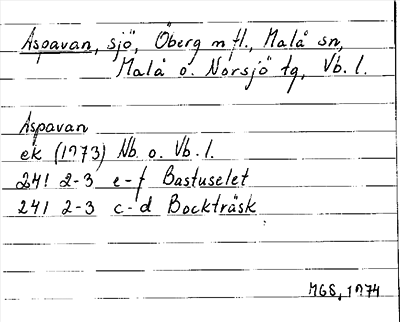 Aspavan, sjö, Öberg m fl., Malå sn,
Malå o. Norsjö tg, Vb. l.
Aspavan
ek (1973) Nb. o. Vb. l.
241 2-3 e-f Bastuselet
241 2-3 c-d Bockträsk
MGS, 1974